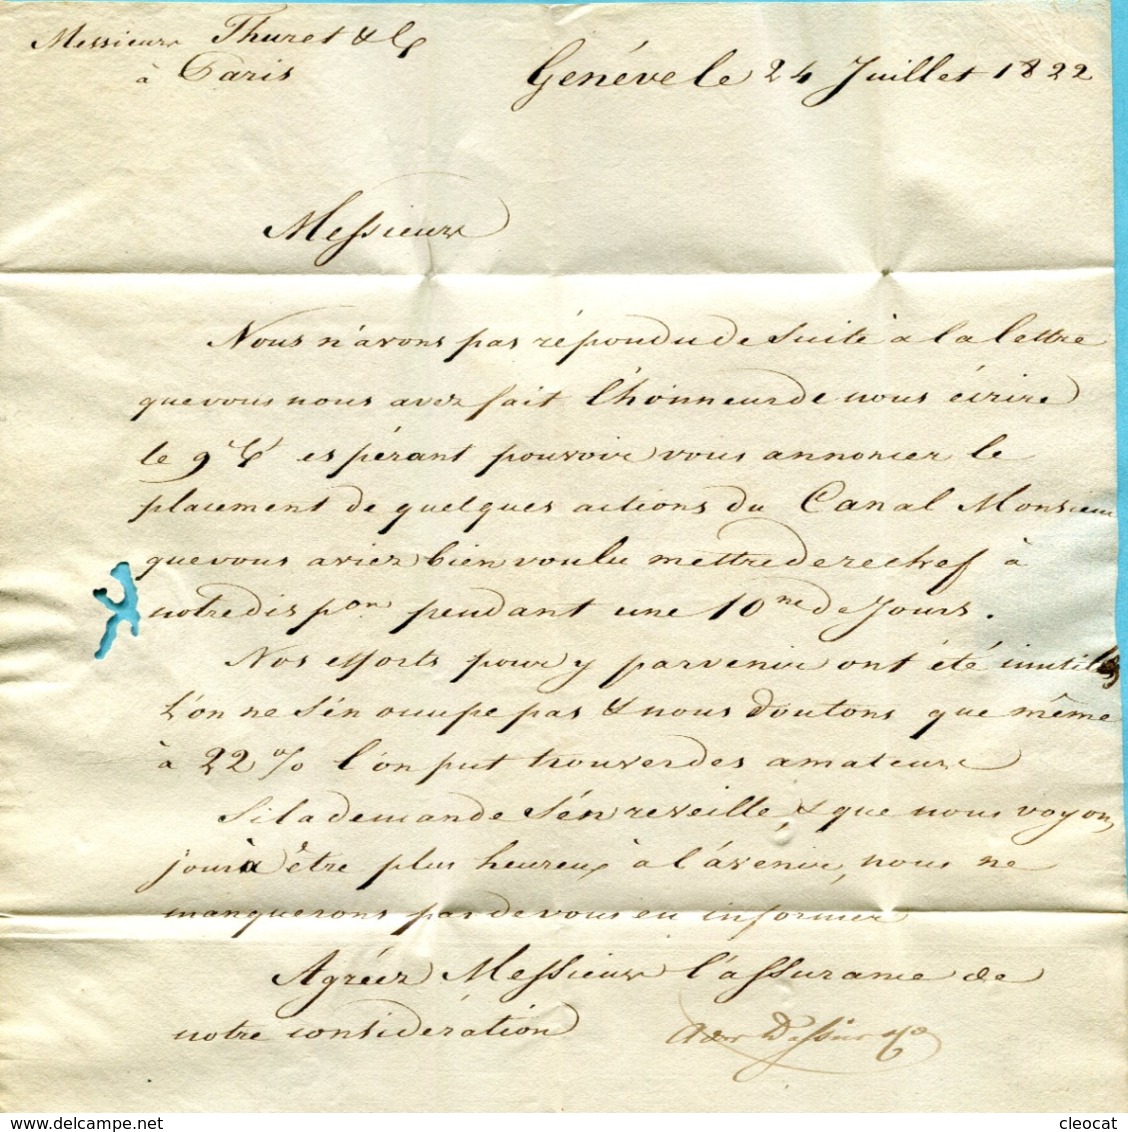 Messieurs Thuret & Cie
à Paris
Genéve le 24 Juillet 1822
Messieurs
Nous n'avons pas répondu de suite à la lettre
que vous nous avez fait l'honneur de nous écrire
le 9 espérant pouvoir vous annoncer le
placement de quelques actions du Canal Monsieur
que vous aviez bien voulu mettre derechef à
notre dispon pendant une 10ne de Jours.
Nos efforts pour y parvenir ont été inutiles
L'on ne s'én occupe pas & nous doutons que même
à 22 % l'on put trouver des amateurs
Si la demande s'én reveille, & que nous voyons
jour à être plus heureux à l'avenir, nous ne
manquerons pas de vous en informer
Agréez Messieurs l'assurance de
notre considération
cleocat